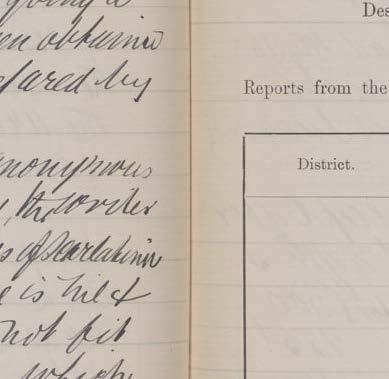 en obtained
pared by
anonymous
, the writer
s of Scarlatina
e is held
not fit
which
Des
Reports from the
District.